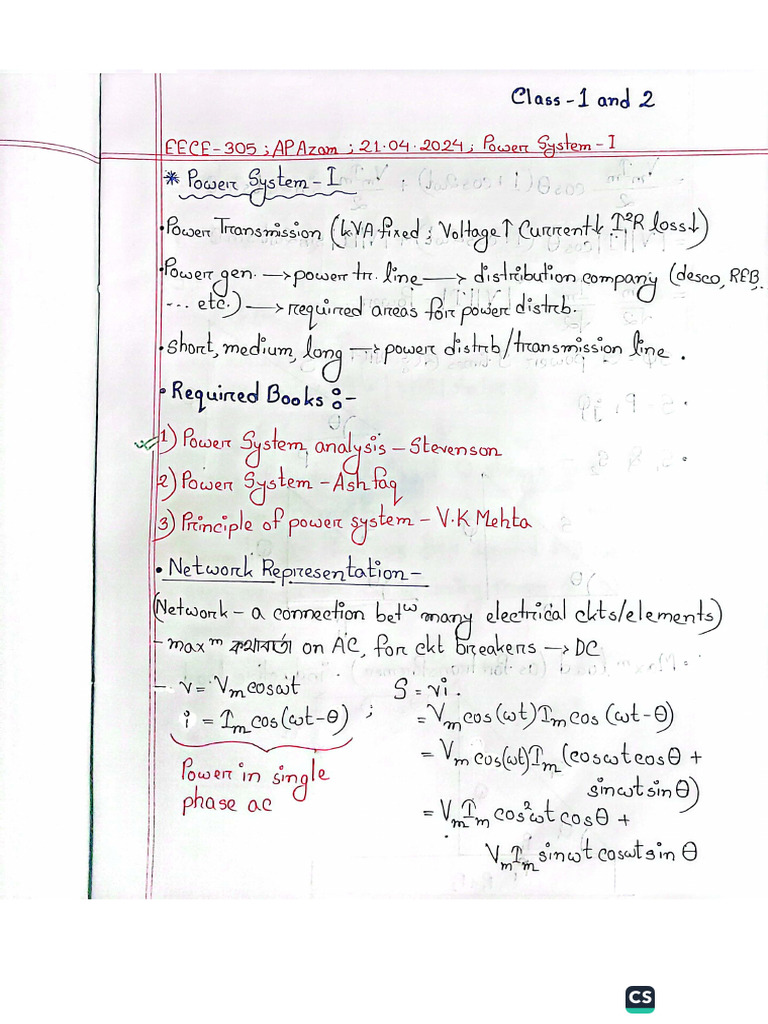 Class-1 and 2
EECE-305 ; AP Azam ; 21.04.2024 ; Power System-I
* Power System-I
• Power Transmission (kVA fixed ; Voltage↑ Current↓ I²R loss↓)
• Power gen. → power tr. line → distribution company (desco, REB,
... etc.) → required areas for power distrb.
• Short, medium, long → power distrb/transmission line .
• Required Books :-
1) Power System analysis – Stevenson
2) Power System – Ashfaq
3) Principle of power system – V.K Mehta
• Network Representation –
(Network – a connection betʷ many electrical ckts/elements)
– maxᵐ কথাবার্তা on AC, for ckt breakers → DC
– v = Vₘ cosωt
i = Iₘ cos(ωt-θ) ;
Power in single
phase ac
S = vi .
= Vₘ cos(ωt) Iₘ cos(ωt-θ)
= Vₘ cos(ωt) Iₘ (cosωt cosθ +
sinωt sinθ)
= Vₘ Iₘ cos²ωt cosθ +
Vₘ Iₘ sinωt cosωt sinθ
CS